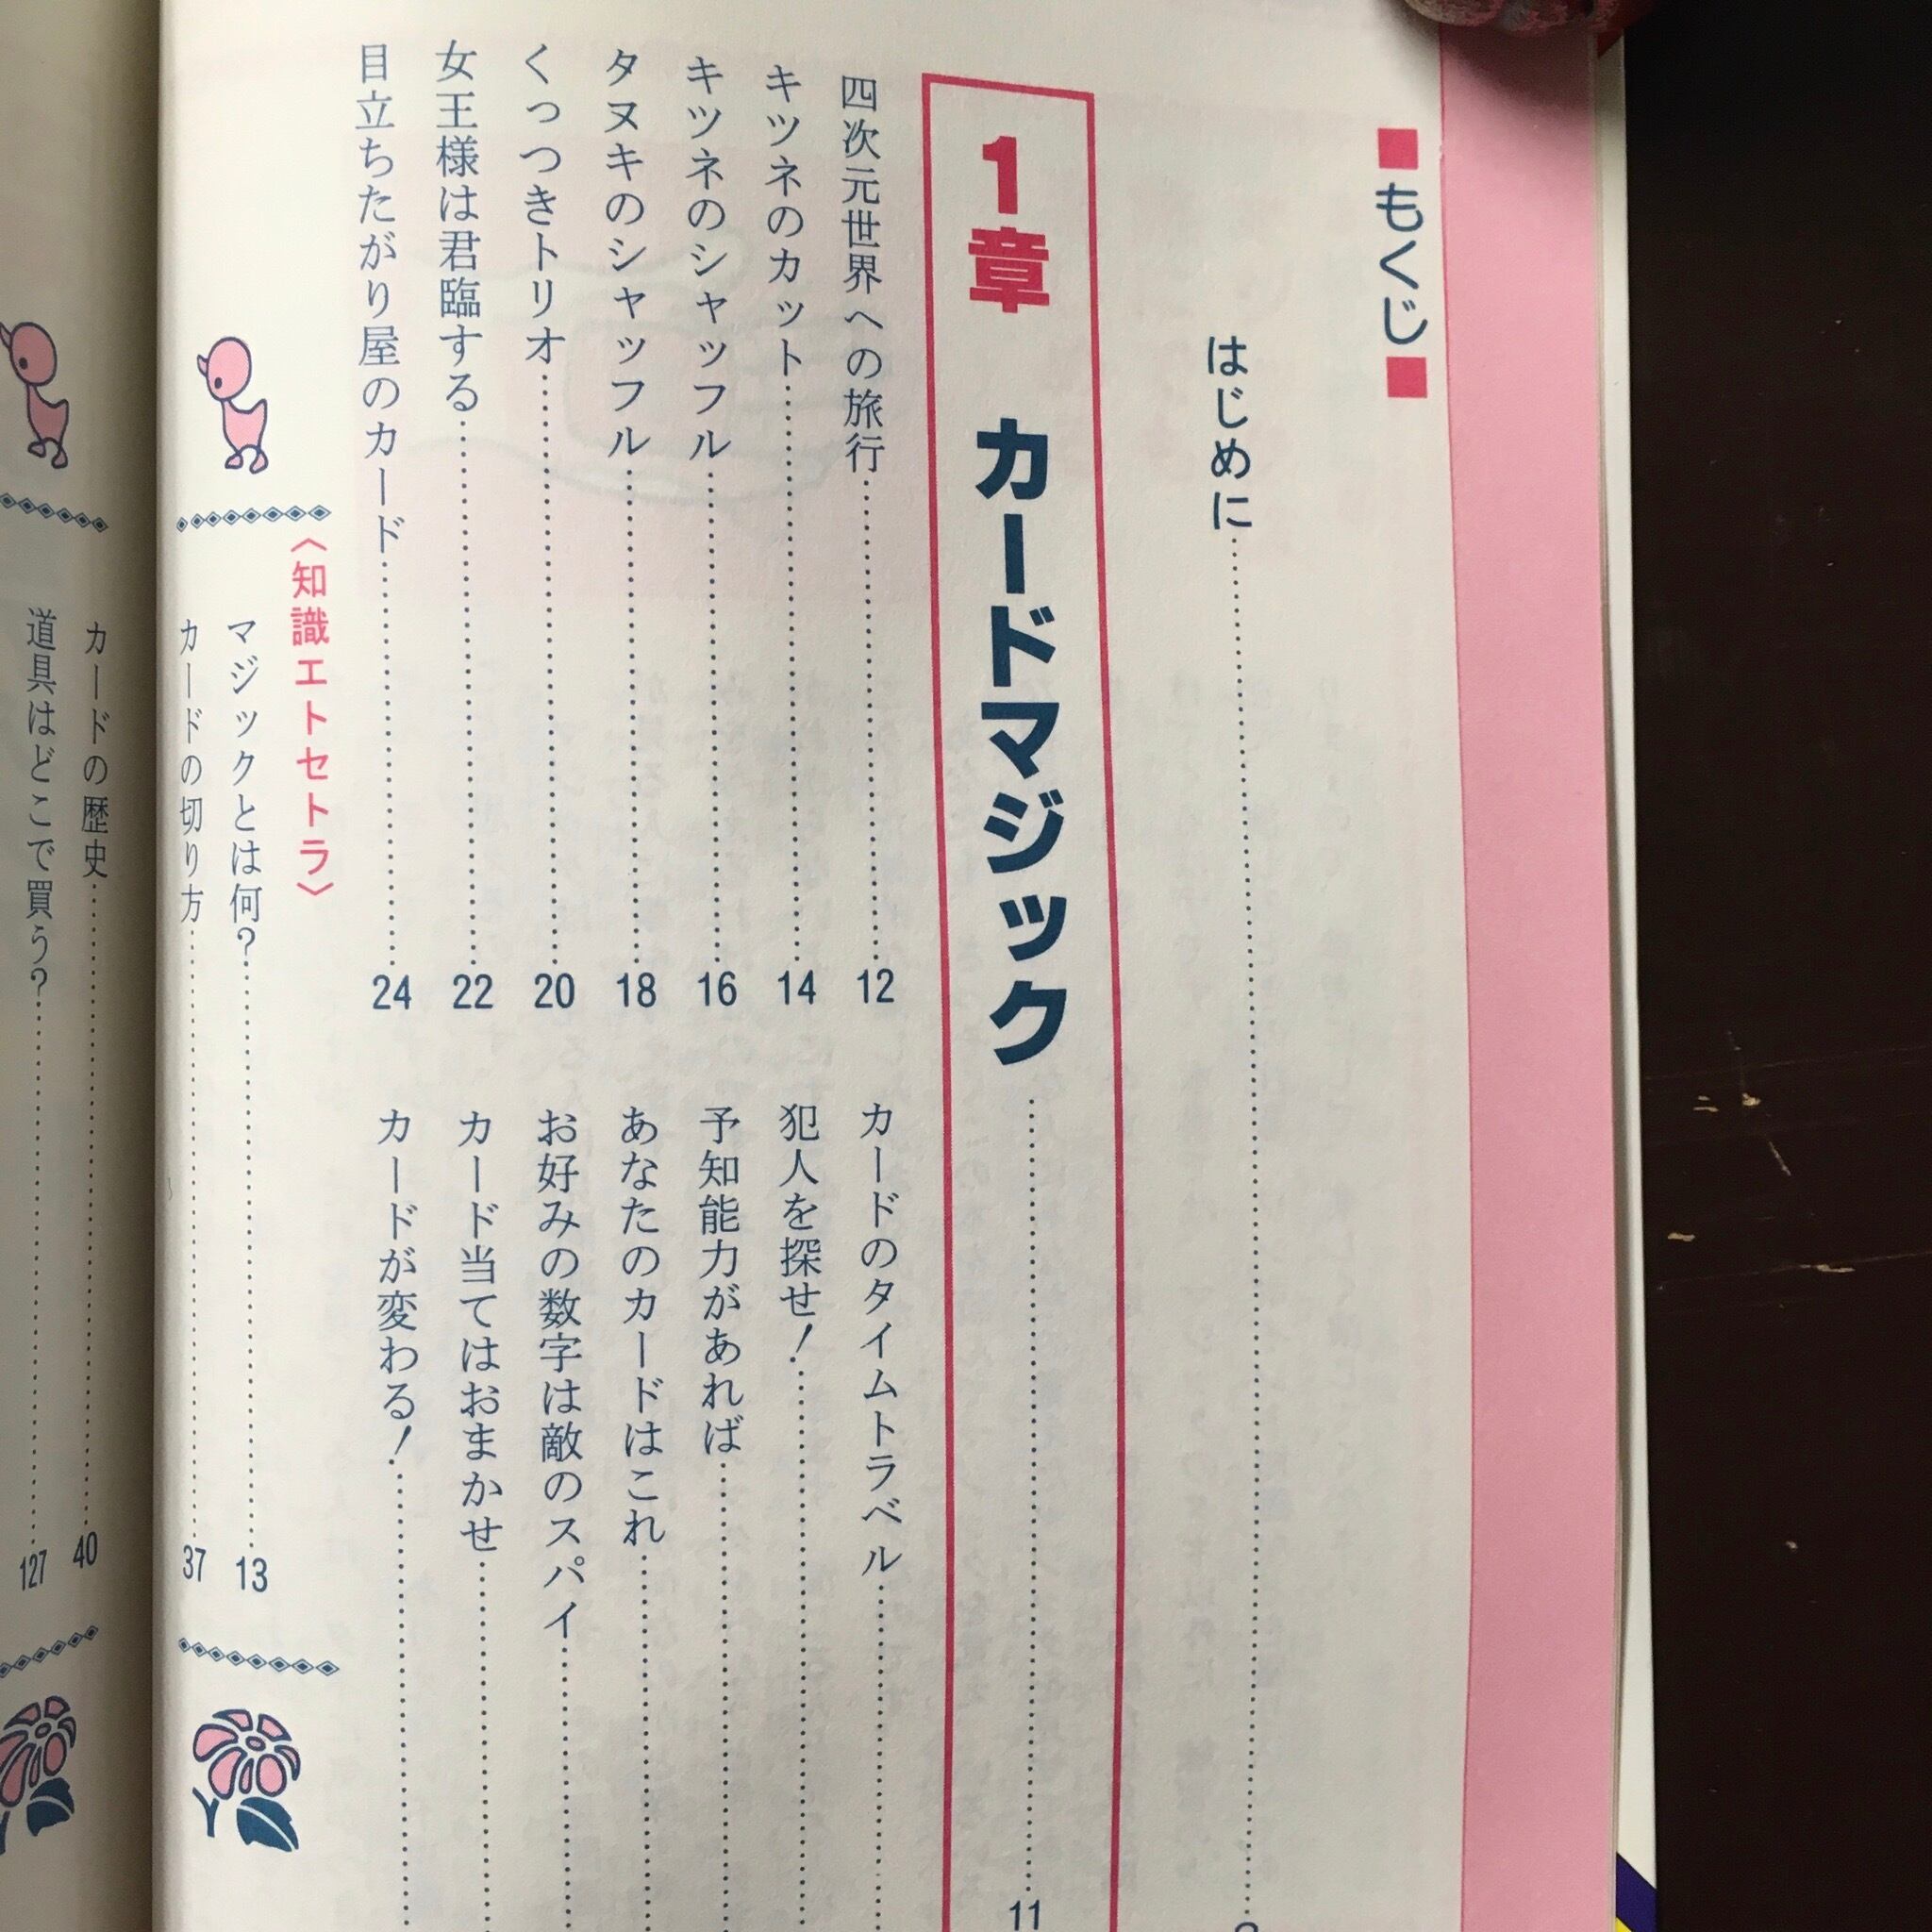 ■もくじ■
はじめに
1章 カードマジック 11
四次元世界への旅行 12
キツネのカット 14
キツネのシャッフル 16
タヌキのシャッフル 18
くっつきトリオ 20
女王様は君臨する 22
目立ちたがり屋のカード 24
カードのタイムトラベル
犯人を探せ!
予知能力があれば
あなたのカードはこれ
お好みの数字は敵のスパイ
カード当てはおまかせ
カードが変わる!
〈知識エトセトラ〉
マジックとは何? 13
カードの切り方 37
カードの歴史 40
道具はどこで買う? 127